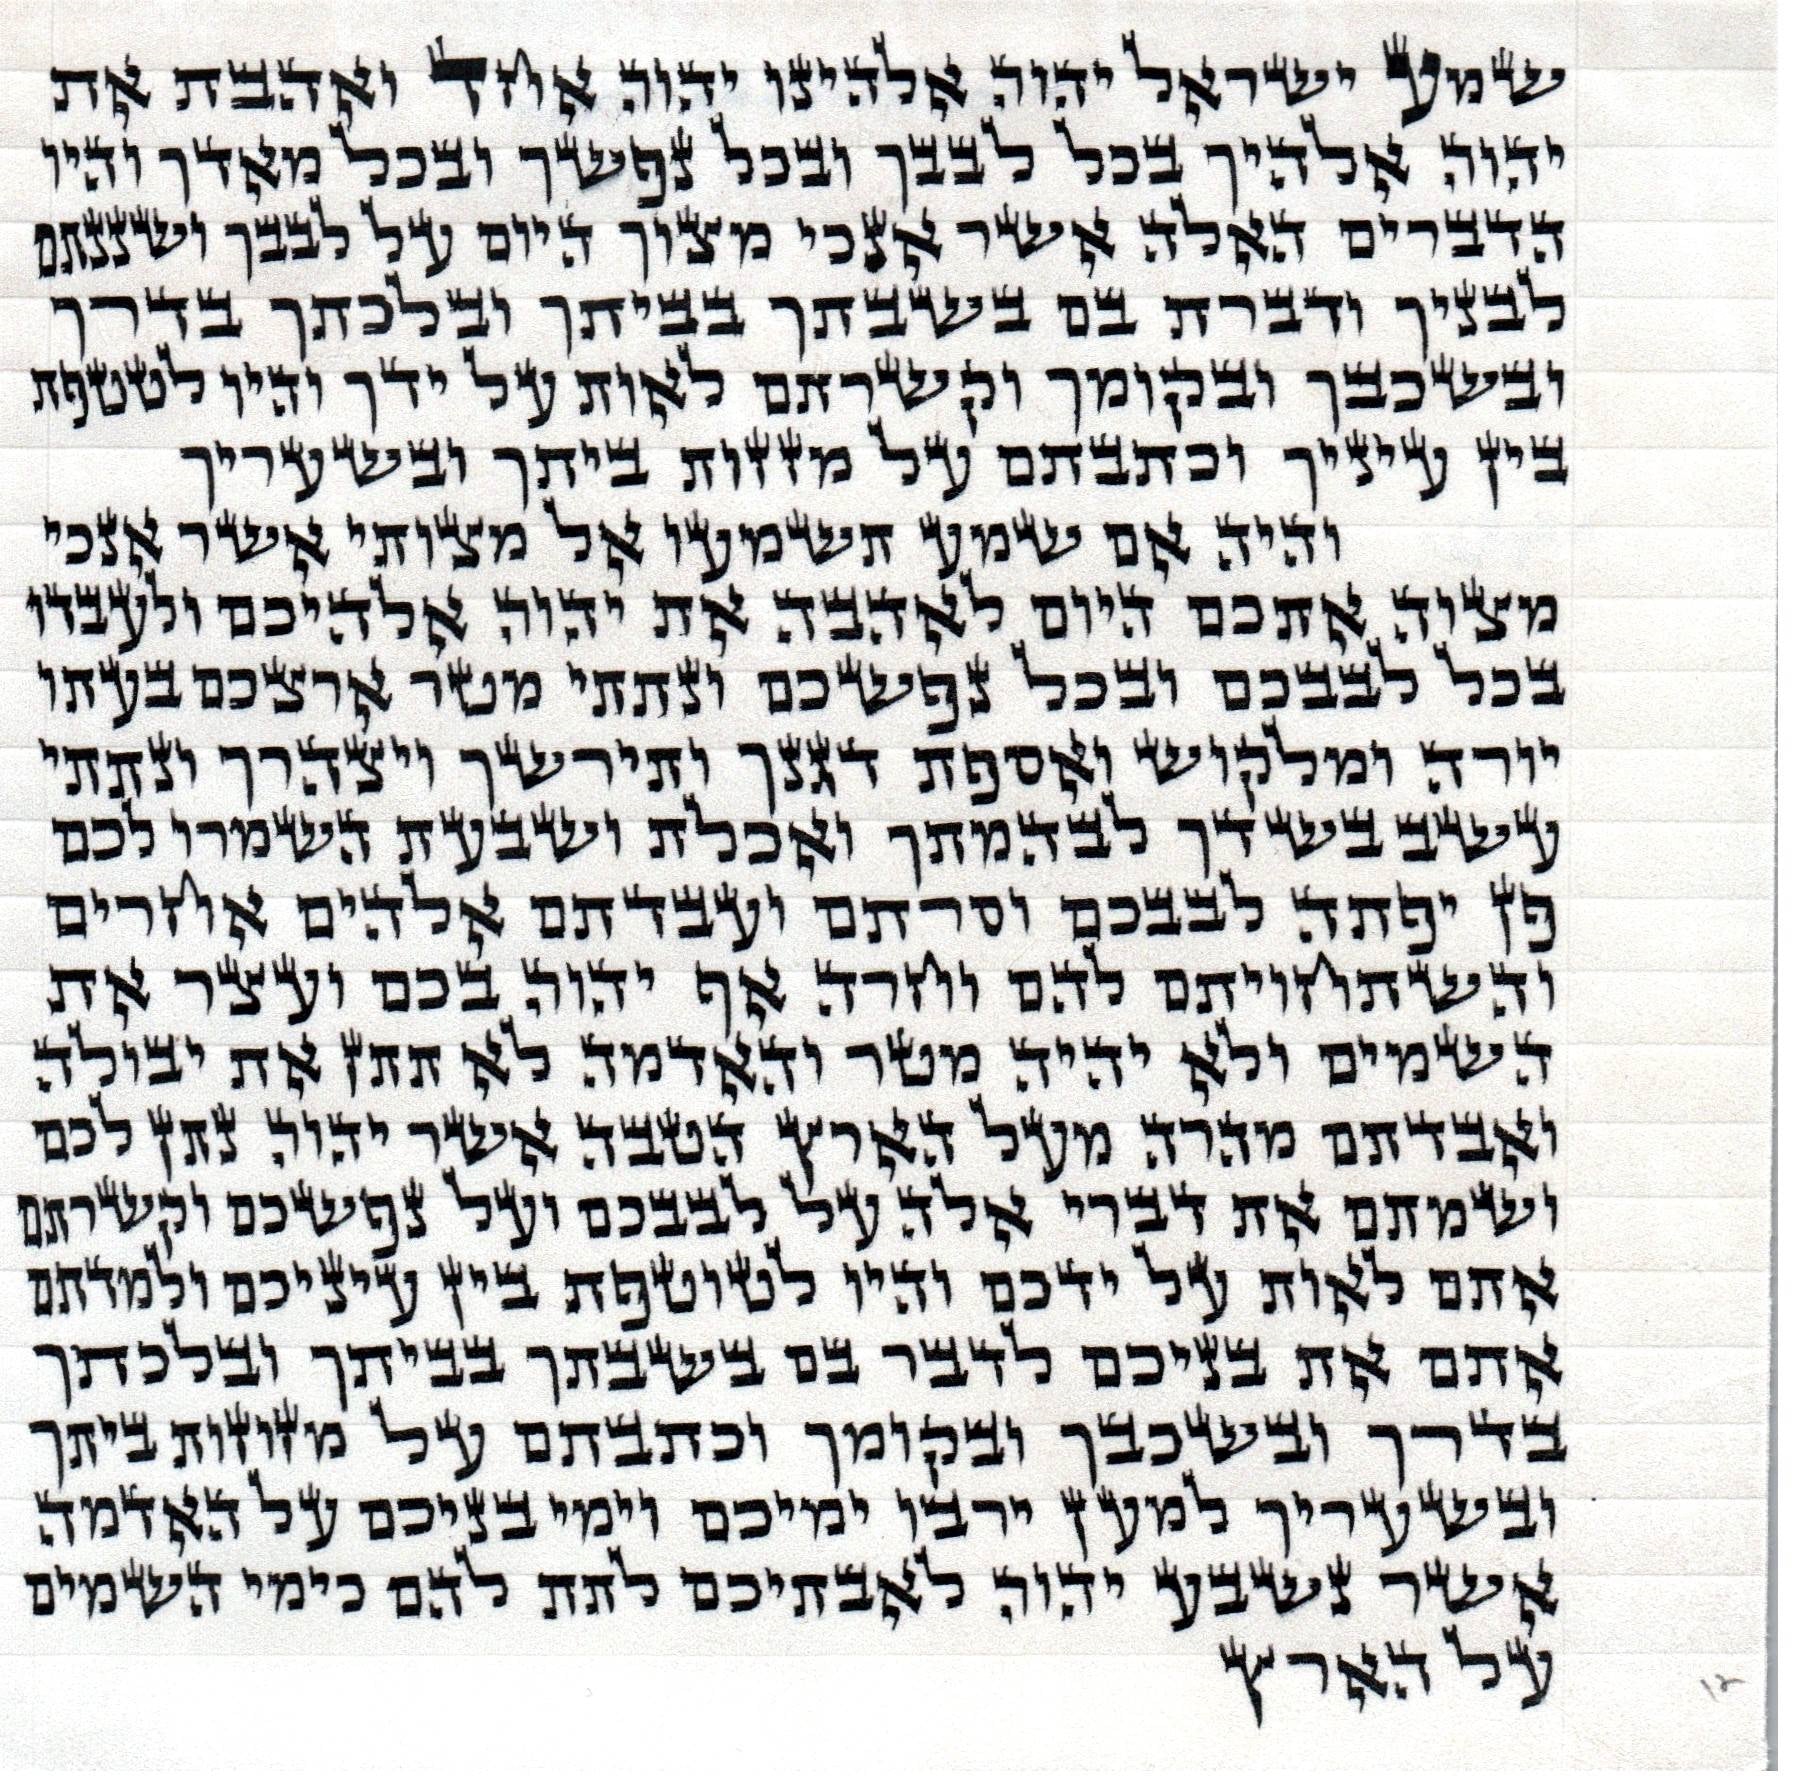 שמע ישראל יהוה אלהינו יהוה אחד ואהבת את
יהוה אלהיך בכל לבבך ובכל נפשך ובכל מאדך והיו
הדברים האלה אשר אנכי מצוך היום על לבבך ושננתם
לבניך ודברת בם בשבתך בביתך ובלכתך בדרך
ובשכבך ובקומך וקשרתם לאות על ידך והיו לטטפת
בין עיניך וכתבתם על מזזות ביתך ובשעריך
והיה אם שמע תשמעו אל מצותי אשר אנכי
מצוה אתכם היום לאהבה את יהוה אלהיכם ולעבדו
בכל לבבכם ובכל נפשכם ונתתי מטר ארצכם בעתו
יורה ומלקוש ואספת דגנך ותירשך ויצהרך ונתתי
עשב בשדך לבהמתך ואכלת ושבעת השמרו לכם
פן יפתה לבבכם וסרתם ועבדתם אלהים אחרים
והשתחויתם להם וחרה אף יהוה בכם ועצר את
השמים ולא יהיה מטר והאדמה לא תתן את יבולה
ואבדתם מהרה מעל הארץ הטבה אשר יהוה נתן לכם
ושמתם את דברי אלה על לבבכם ועל נפשכם וקשרתם
אתם לאות על ידכם והיו לטוטפת בין עיניכם ולמדתם
אתם את בניכם לדבר בם בשבתך בביתך ובלכתך
בדרך ובשכבך ובקומך וכתבתם על מזוזות ביתך
ובשעריך למען ירבו ימיכם וימי בניכם על האדמה
אשר נשבע יהוה לאבתיכם לתת להם כימי השמים
על הארץ